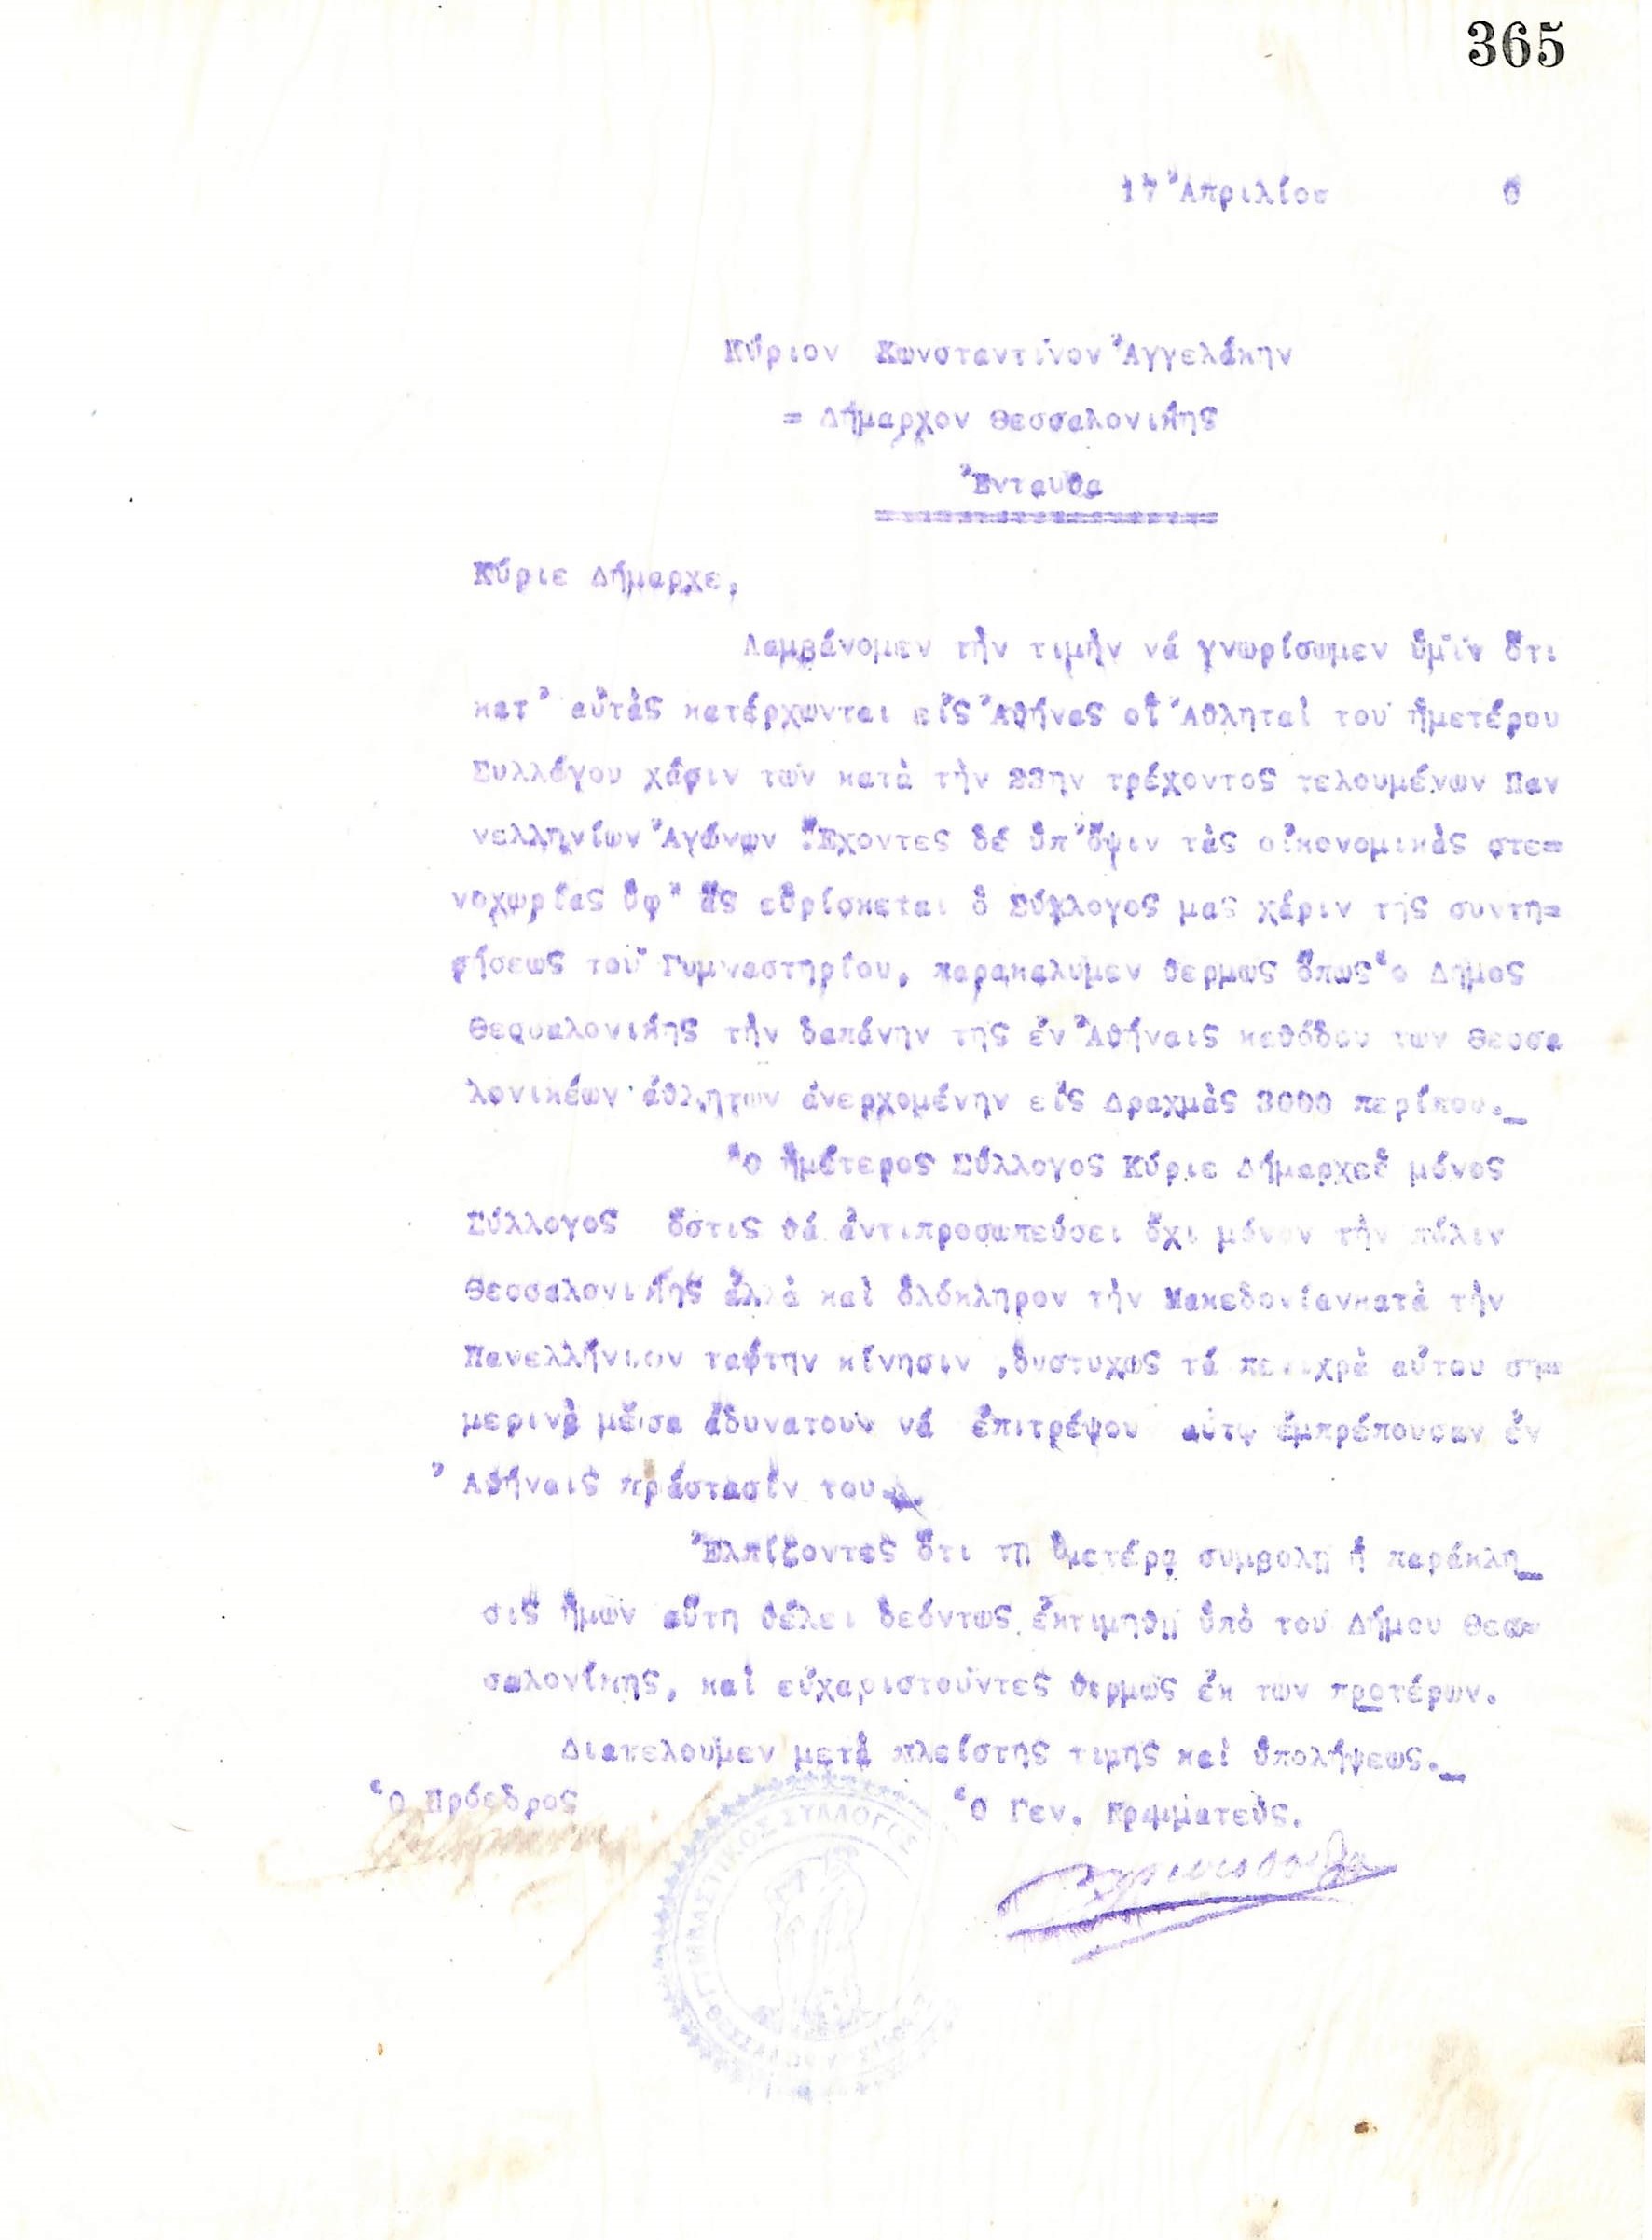 365
17 Ἀπριλίου 0
Κύριον Κωνσταντῖνον Ἀγγελάκην
= Δήμαρχον Θεσσαλονίκης
Ἐνταυθα
Κύριε Δήμαρχε,
Λαμβάνομεν τὴν τιμὴν νά γνωρίσωμεν ὑμῖν ὅτι
κατ' αὐτὰς κατέρχωνται εἰς Ἀθήνας οἱ Ἀθληταὶ τοῦ ἡμετέρου
Συλλόγου χάριν τῶν κατὰ τὴν 23ην τρέχοντος τελουμένων Παν
νελληνίων Ἀγώνων .Ἔχοντες δέ ὑπ' ὄψιν τὰς οἰκονομικὰς στε=
νοχωρίας ὑφ' ἅς εὑρίσκεται ὁ Σύλλογος μας χάριν τῆς συντη=
ρίσεως τοῦ Γυμναστηρίου, παρακαλυμεν θερμῶς ὅπως ὁ Δημος
Θεσσαλονικής τὴν δαπάνην τῆς ἐν Ἀθήναις καθόδου των Θεσσα
λονικέων ἀθλητων ἀνερχομένην εἰς Δραχμὰς 3000 περίπου._
Ὁ ἡμέτερος Σύλλογος Κύριε Δήμαρχεὁ μόνος
Σύλλογος ὅστις θά ἀντιπροσωπεύσει ὄχι μόνον τὴν πόλιν
Θεσσαλονικής ἀλλὰ καὶ ὁλόκληρον τὴν Μακεδονίανκατὰ τὴν
Πανελλήνιον ταύτην κίνησιν ,δυστυχως τά πενιχρὰ αὐτου ση=
μερινὰ μέσα ἀδυνατουν νά ἐπιτρέψου αὐτῳ ἐμπρέπουσαν ἐν
Ἀθήναις πράστασίν του.
Ἐλπίζοντες ὅτι τῃ ὑμετέρᾳ συμβολῃ ἡ παράκλη_
σις ἡμῶν αὕτη θέλει δεόντως ἐκτιμηθῃ ὑπὸ τοῦ Δήμου Θεσ=
σαλονίκης, καὶ εὐχαριστοῦντες θερμῶς ἐκ των προτέρων.
Διατελοῦμεν μετὰ πλείστης τιμῆς καὶ ὑπολήψεως._
Ὁ Πρόεδρος Ὁ Γεν. Γραμματεὺς.
ΓΥΜΝΑΣΤΙΚΟΣ ΣΥΛΛΟΓΟΣ